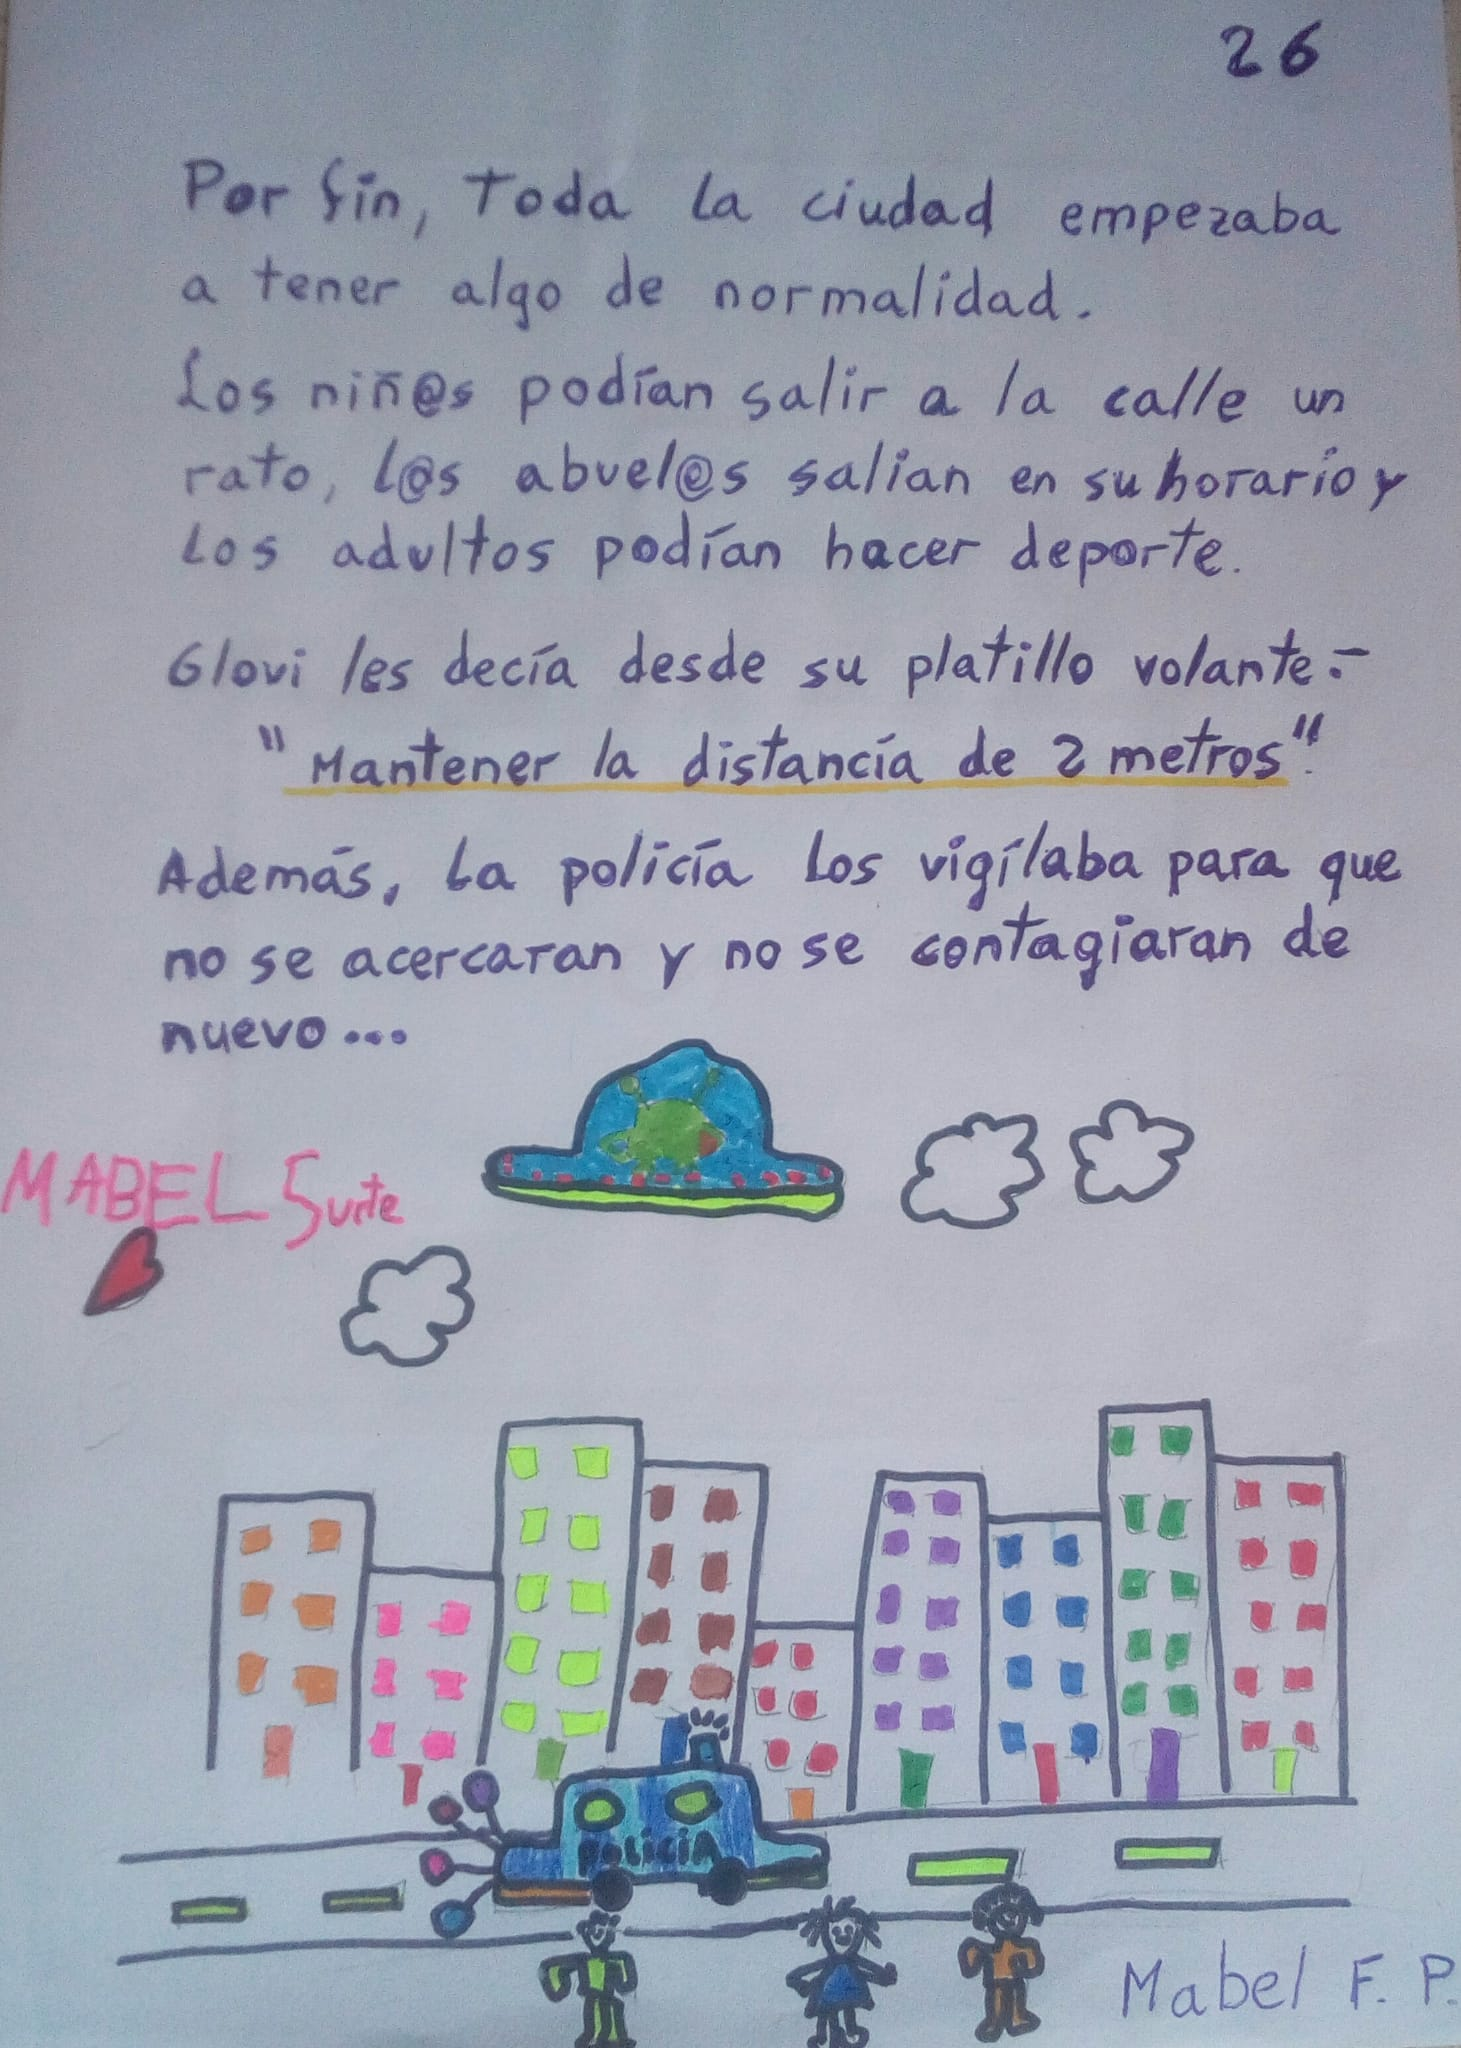 26
Por fin, toda la ciudad empezaba
a tener algo de normalidad.
Los niñ@s podían salir a la calle un
rato, l@s abuel@s salían en su horario y
los adultos podían hacer deporte.
Glovi les decía desde su platillo volante:-
"Mantener la distancía de 2 metros".
Además, la policía los vigílaba para que
no se acercaran y no se contagiaran de
nuevo...
MABEL Surte
POLICIA
Mabel F. P.